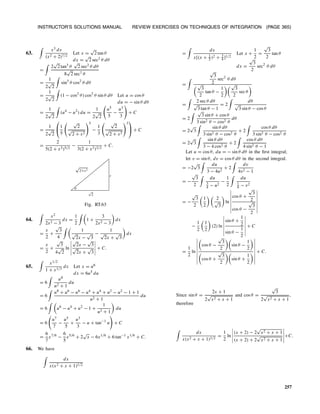 INSTRUCTOR'S SOLUTIONS MANUAL REVIEW EXERCISES ON TECHNIQUES OF INTEGRATION (PAGE 365)
63. ∫ x³ dx / (x² + 2)^{7/2} Let x = √2 tan θ
dx = √2 sec² θ dθ
= ∫ 2√2 tan³ θ √2 sec² θ dθ / 8√2 sec⁷ θ
= 1/(2√2) ∫ sin³ θ cos² θ dθ
= 1/(2√2) ∫ (1 − cos² θ) cos² θ sin θ dθ Let u = cos θ
du = − sin θ dθ
= 1/(2√2) ∫ (u⁴ − u²) du = 1/(2√2) (u⁵/5 − u³/3) + C
= 1/(2√2) (1/5 (√2/√(2 + x²))⁵ − 1/3 (√2/√(2 + x²))³) + C
= 2/(5(2 + x²)^{5/2}) − 1/(3(2 + x²)^{3/2}) + C.
√2+x²
x
θ
√2
Fig. RT.63
64. ∫ x²/(2x² − 3) dx = 1/2 ∫ (1 + 3/(2x² − 3)) dx
= x/2 + √3/4 ∫ (1/(√2x − √3) − 1/(√2x + √3)) dx
= x/2 + √3/(4√2) ln |(√2x − √3)/(√2x + √3)| + C.
65. ∫ x^{1/2}/(1 + x^{1/3}) dx Let x = u⁶
dx = 6u⁵ du
= 6 ∫ u⁸/(u² + 1) du
= 6 ∫ (u⁸ + u⁶ − u⁶ − u⁴ + u⁴ + u² − u² − 1 + 1)/(u² + 1) du
= 6 ∫ (u⁶ − u⁴ + u² − 1 + 1/(u² + 1)) du
= 6 (u⁷/7 − u⁵/5 + u³/3 − u + tan⁻¹ u) + C
= 6/7 x^{7/6} − 6/5 x^{5/6} + 2√x − 6x^{1/6} + 6 tan⁻¹ x^{1/6} + C.
66. We have
∫ dx / (x(x² + x + 1)^{1/2})
= ∫ dx / (x[(x + 1/2)² + 3/4]^{1/2}) Let x + 1/2 = √3/2 tan θ
dx = √3/2 sec² θ dθ
= ∫ (√3/2 sec² θ dθ) / ((√3/2 tan θ − 1/2)(√3/2 sec θ))
= ∫ 2 sec θ dθ/(√3 tan θ − 1) = 2 ∫ dθ/(√3 sin θ − cos θ)
= 2 ∫ (√3 sin θ + cos θ)/(3 sin² θ − cos² θ) dθ
= 2√3 ∫ sin θ dθ/(3 sin² θ − cos² θ) + 2 ∫ cos θ dθ/(3 sin² θ − cos² θ)
= 2√3 ∫ sin θ dθ/(3 − 4 cos² θ) + 2 ∫ cos θ dθ/(4 sin² θ − 1)
Let u = cos θ, du = − sin θ dθ in the first integral;
let v = sin θ, dv = cos θ dθ in the second integral.
= −2√3 ∫ du/(3 − 4u²) + 2 ∫ dv/(4v² − 1)
= −√3/2 ∫ du/(3/4 − u²) − 1/2 ∫ dv/(1/4 − v²)
= −√3/2 (1/2)(2/√3) ln |(cos θ + √3/2)/(cos θ − √3/2)|
− 1/2 (1/2)(2) ln |(sin θ + 1/2)/(sin θ − 1/2)| + C
= 1/2 ln |(cos θ − √3/2)(sin θ − 1/2) / ((cos θ + √3/2)(sin θ + 1/2))| + C
Since sin θ = (2x + 1)/(2√(x² + x + 1)) and cos θ = √3/(2√(x² + x + 1)),
therefore
∫ dx/(x(x² + x + 1)^{1/2}) = 1/2 ln |((x + 2) − 2√(x² + x + 1))/((x + 2) + 2√(x² + x + 1))| + C.
257